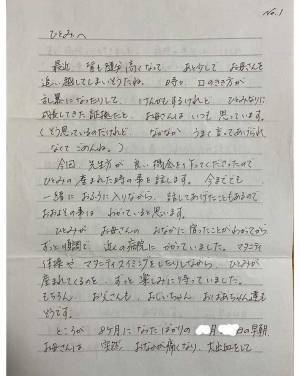 No.1
ひとみへ
最近、背も随分高くなって、あと少しで お母さんを
追い越してしまいそうだね。 時々、口のきき方が
乱暴になったりして、けんかもするけれど ひとみなりに
成長してきた証拠だと お母さんは いつも思っています。
(そう思っているのだけれど なかなか うまく言ってあげられ
なくて ごめんね。)
今回 先生方が 良い機会を作ってくださったので
ひとみの産まれた時の事を話します。今までも
一緒に おふろに入りながら、話してあげたこともあるので
おおよその事は わかっていると思います。
ひとみが お母さんの おなかに宿ったことがわかってから
ずっと順調で 近くの病院に かかっていました。マタニティ
体操や マタニティスイミングをしたりしながら、ひとみが
産まれてくるのを ずっと楽しみに待っていました。
もちろん お父さんも おじいちゃん おばあちゃん達も
そうです。
ところが 8ヶ月に なったばかりの の早朝
お母さんは 突然 おなかが痛くなり、大出血をして